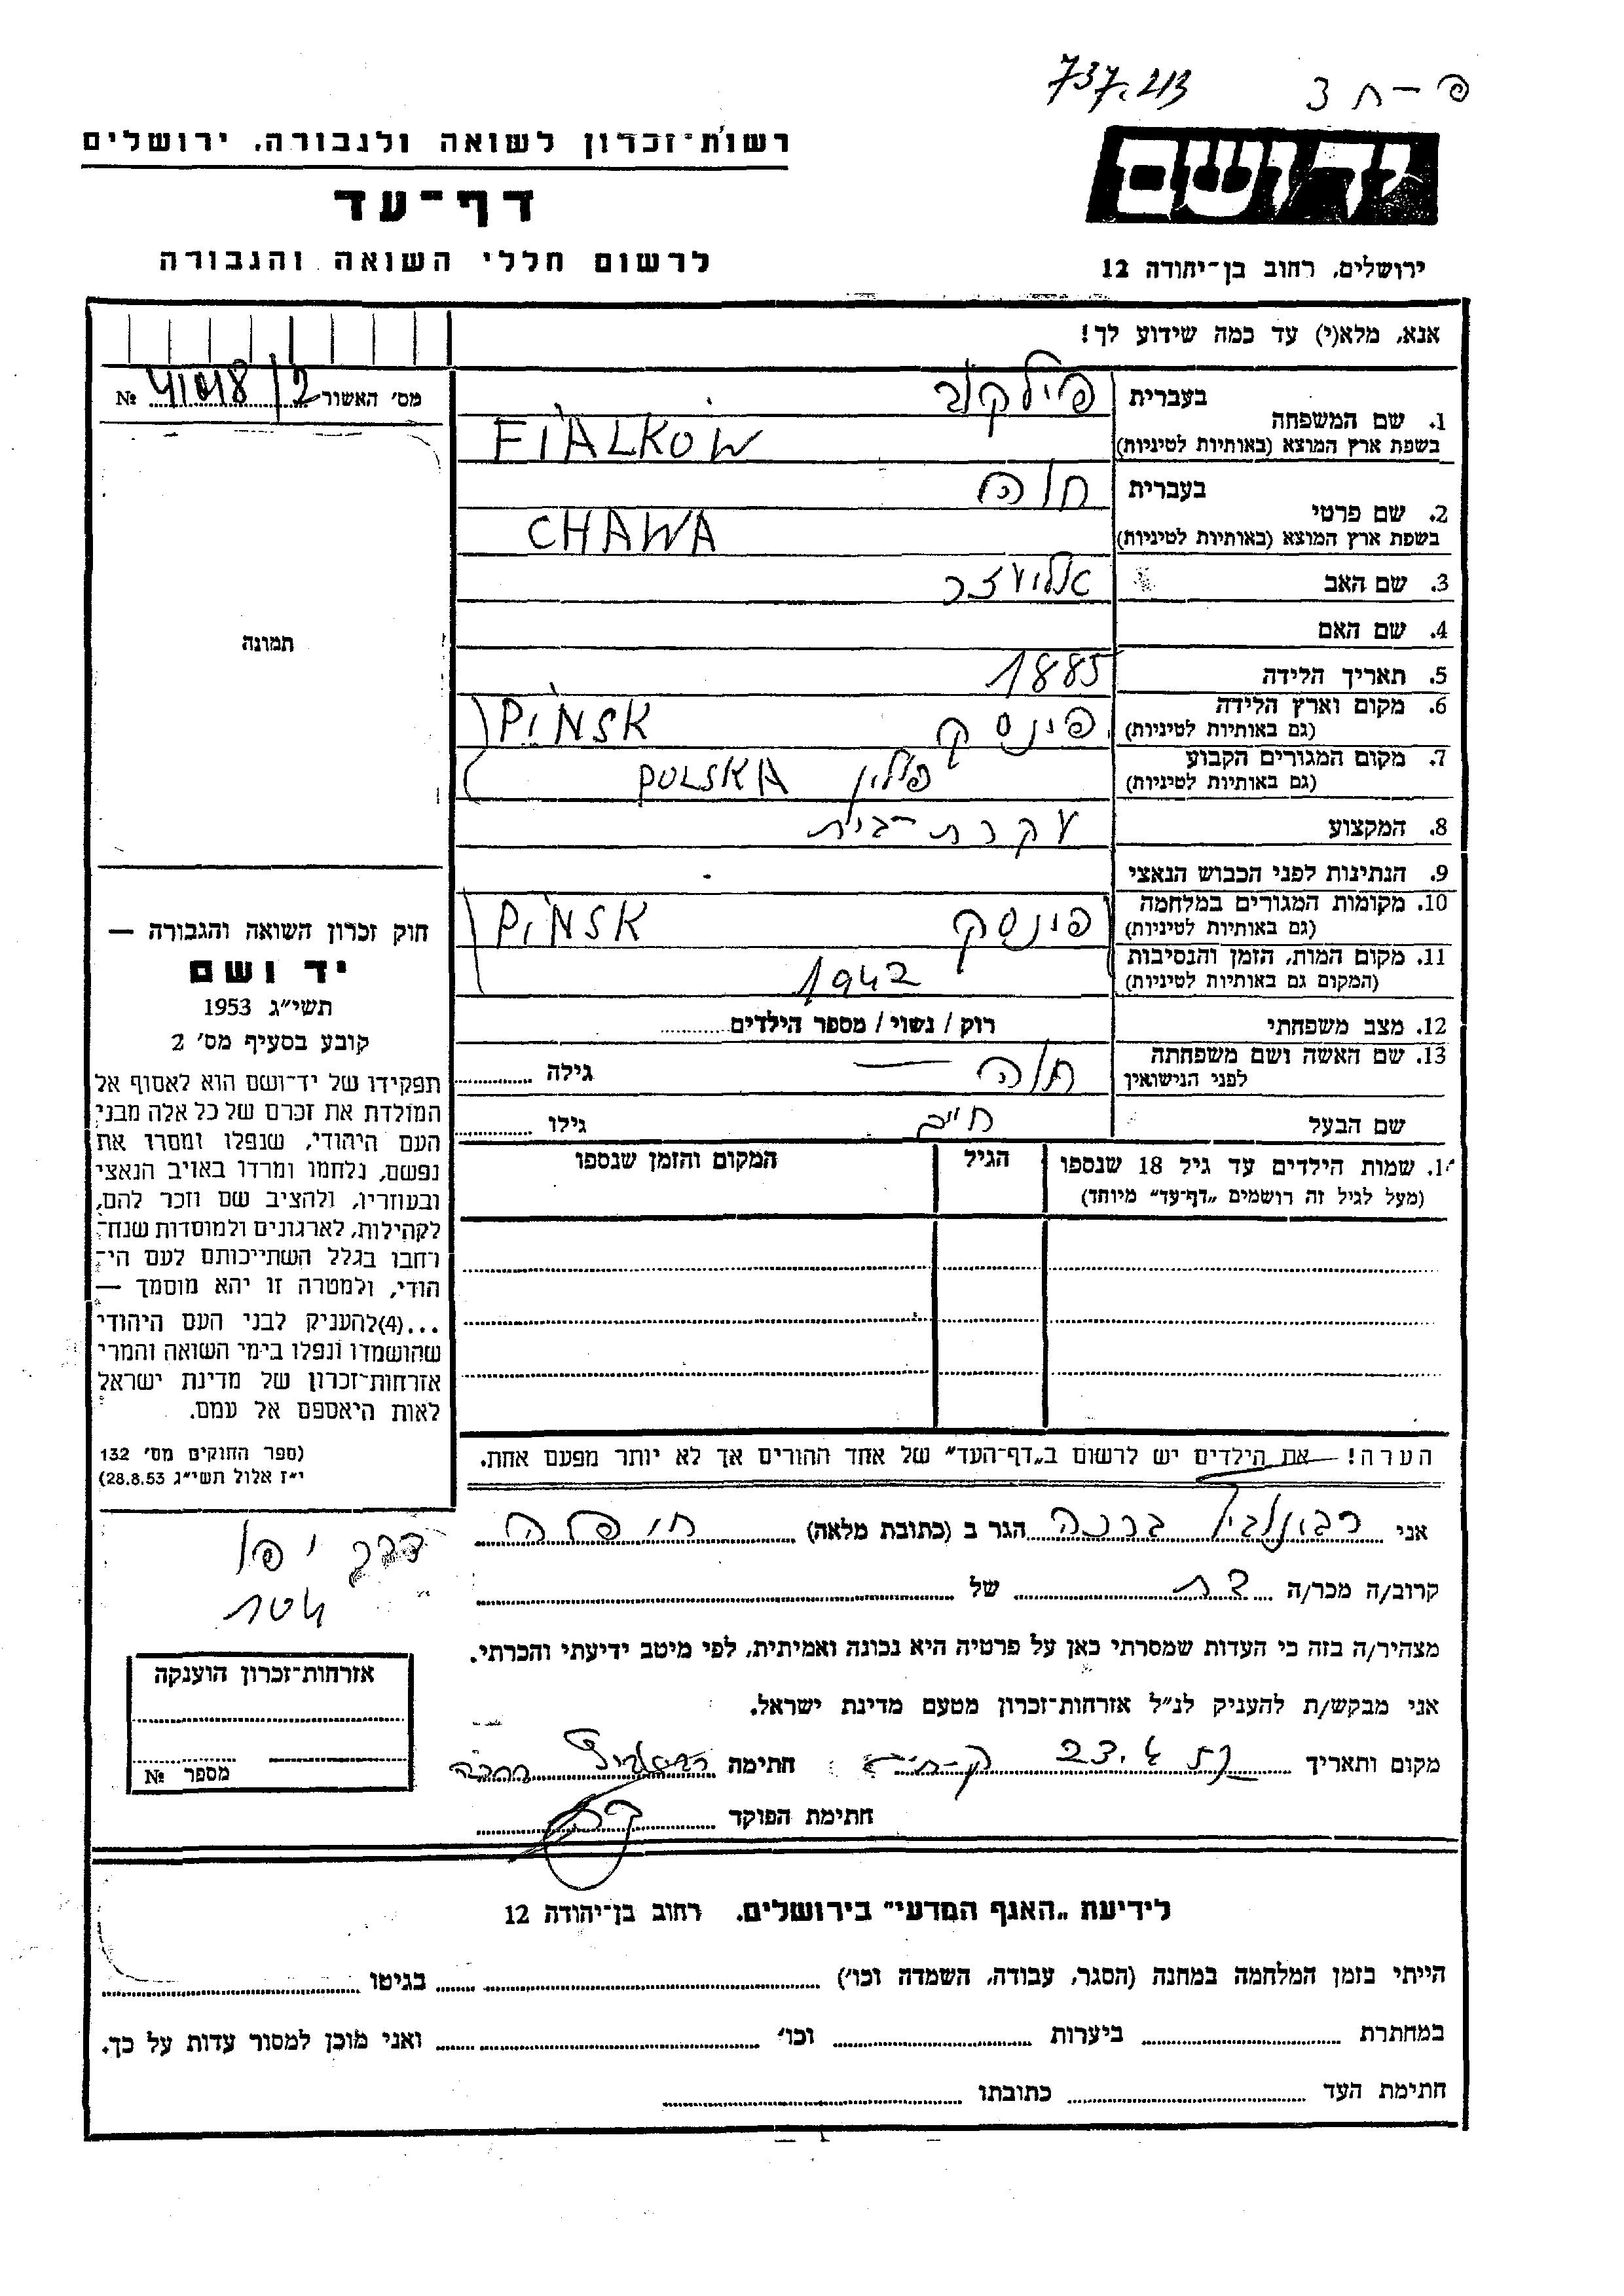 737.213
פ-ח 3
רשות-זכרון לשואה ולגבורה, ירושלים
דף-עד
לרשום חללי השואה והגבורה
יד ושם
ירושלים, רחוב בן-יהודה 12
אנא, מלא(י) עד כמה שידוע לך!
מס׳ האשור 41018/2 №
תמונה
1. שם המשפחה
בעברית פילקוב
בשפת ארץ המוצא (באותיות לטיניות) FIALKOW
2. שם פרטי
בעברית חוה
בשפת ארץ המוצא (באותיות לטיניות) CHAWA
3. שם האב אליעזר
4. שם האם
5. תאריך הלידה 1885
6. מקום וארץ הלידה פינסק PINSK
(גם באותיות לטיניות)
7. מקום המגורים הקבוע פולין POLSKA
(גם באותיות לטיניות)
8. המקצוע עקרת-בית
9. הנתינות לפני הכבוש הנאצי
10. מקומות המגורים במלחמה פינסק PINSK
(גם באותיות לטיניות)
11. מקום המות, הזמן והנסיבות 1942
(המקום גם באותיות לטיניות)
12. מצב משפחתי רוק / נשוי / מספר הילדים
13. שם האשה ושם משפחתה חוה — גילה
לפני הנישואין
שם הבעל גילו
1. שמות הילדים עד גיל 18 שנספו הגיל המקום והזמן שנספו
(מעל לגיל זה רושמים „דף-עד״ מיוחד)
הערה! — את הילדים יש לרשום ב„דף-העד״ של אחד ההורים אך לא יותר מפעם אחת.
חוק זכרון השואה והגבורה —
יד ושם
תשי״ג 1953
קובע בסעיף מס׳ 2
תפקידו של יד-ושם הוא לאסוף אל
המולדת את זכרם של כל אלה מבני
העם היהודי, שנפלו ומסרו את
נפשם, נלחמו ומרדו באויב הנאצי
ובעוזריו, ולהציב שם וזכר להם,
לקהילות, לארגונים ולמוסדות שנח-
רחבו בגלל השתייכותם לעם הי-
הודי, ולמטרה זו יהא מוסמך —
...(4)להעניק לבני העם היהודי
שהושמדו ונפלו בימי השואה והמרי
אזרחות-זכרון של מדינת ישראל
לאות היאספם אל עמם.
(ספר החוקים מס׳ 132
י״ז אלול תשי״ג 28.8.53)
אני ברכה הגר ב (כתובת מלאה) חיפה
דרך יפו
קרוב/ה מכר/ה בת של
מצהיר/ה בזה כי העדות שמסרתי כאן על פרטיה היא נכונה ואמיתית, לפי מיטב ידיעתי והכרתי.
אני מבקש/ת להעניק לנ״ל אזרחות-זכרון מטעם מדינת ישראל.
מקום ותאריך חתימה
חתימת הפוקד
אזרחות-זכרון הוענקה
מספר №
לידיעת „האגף המדעי״ בירושלים, רחוב בן-יהודה 12
הייתי בזמן המלחמה במחנה (הסגר, עבודה, השמדה וכו׳) בגיטו
במחתרת ביערות וכו׳ ואני מוכן למסור עדות על כך.
חתימת העד כתובתו